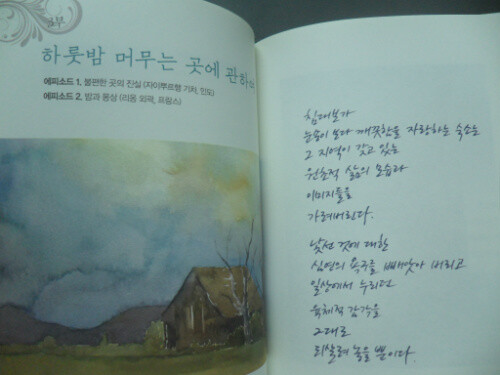 2부
하룻밤 머무는 곳에 관하
에피소드 1. 불편한 곳의 진실 (자이푸르행 기차, 인도)
에피소드 2. 밤과 몽상 (리옹 외곽, 프랑스)
침대보가
눈송이 보다 깨끗함을 자랑하는 숙소는
그 지역이 갖고 있는
원초적 삶의 모습과
이미지들을
가려버린다.
낯선 것에 대한
심연의 욕구를 빼앗아 버리고
일상에서 누리던
육체적 감각을
그대로
되살려 놓을 뿐이다.